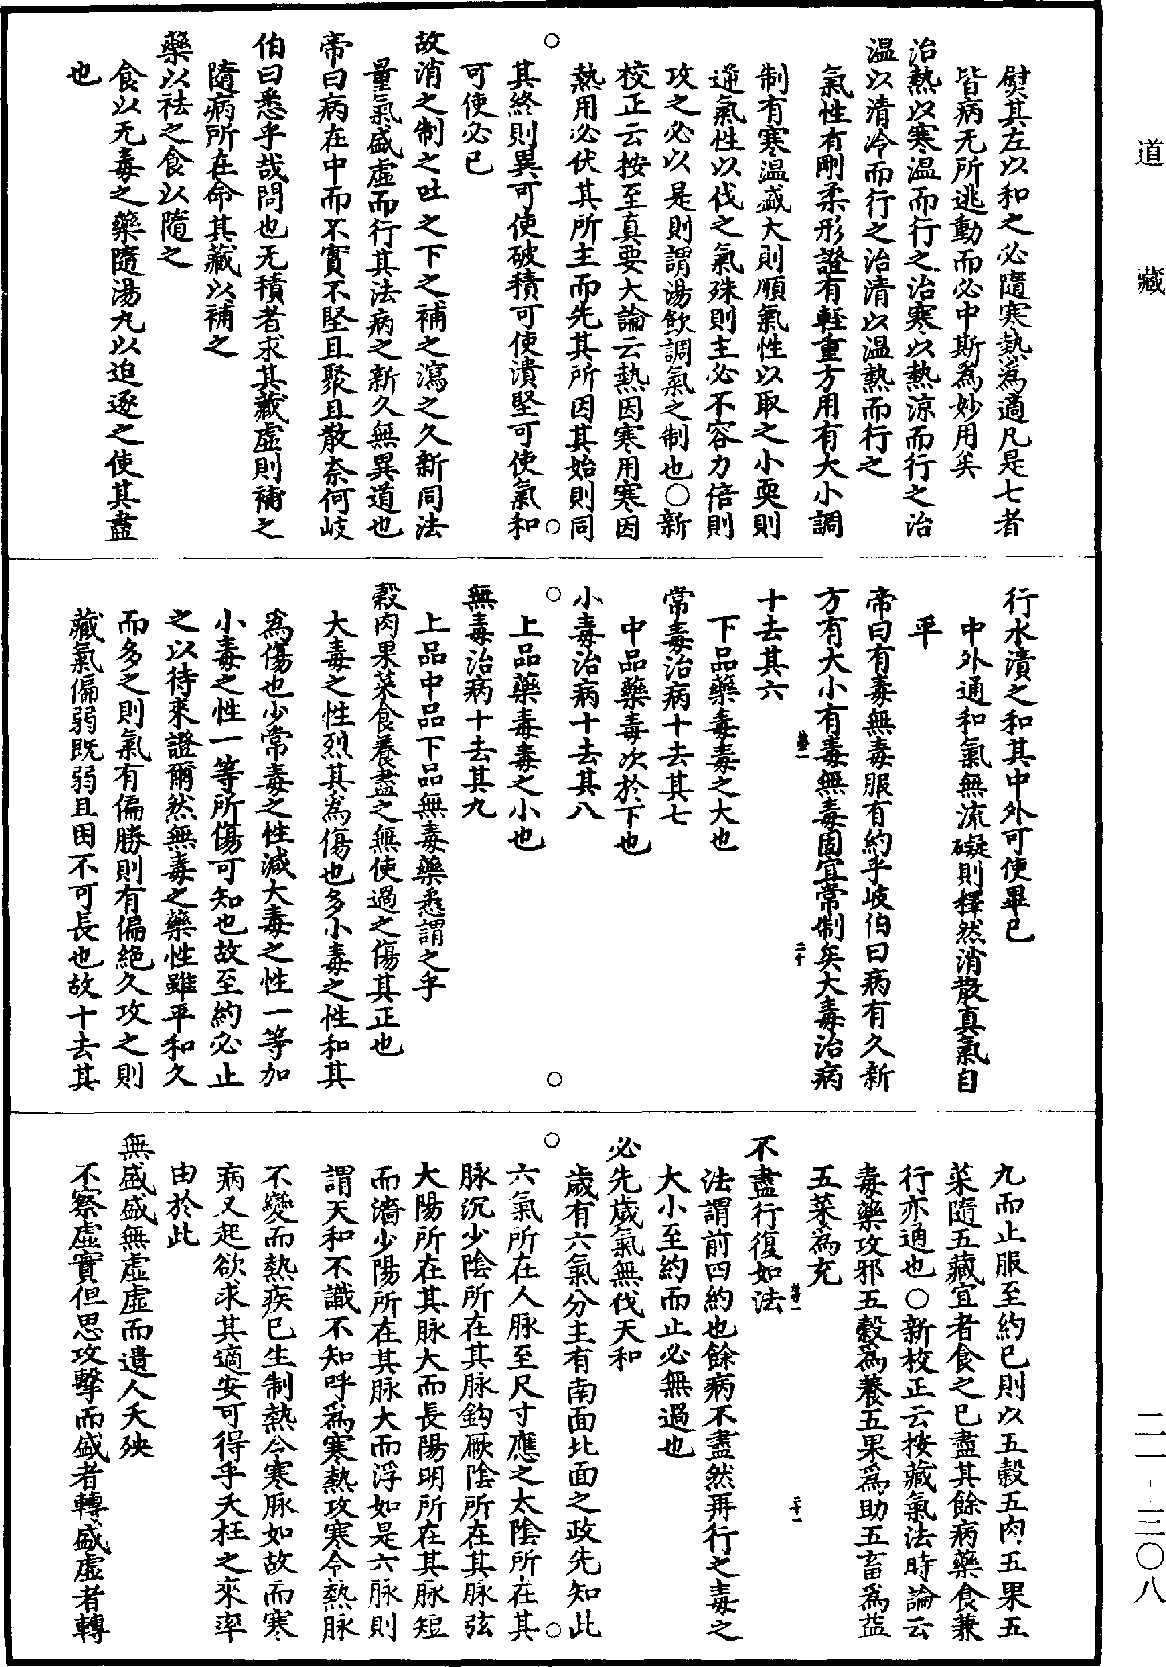 道藏
熨其左以和之必隨寒熱為適凡是七者
皆病无所逃動而必中斯為妙用矣
治熱以寒溫而行之治寒以熱涼而行之治
溫以清冷而行之治清以溫熱而行之
氣性有剛柔形證有輕重方用有大小調
制有寒溫盛大則順氣性以取之小耎則
逆氣性以伐之氣殊則主必不容力倍則
攻之必以是則謂湯飲調氣之制也○新
校正云按至真要大論云熱因寒用寒因
熱用必伏其所主而先其所因其始則同
其終則異可使破積可使潰堅可使氣和
可使必已
故消之制之吐之下之補之瀉之久新同法
量氣盛虛而行其法病之新久無異道也
帝曰病在中而不實不堅且聚且散奈何岐
伯曰悉乎哉問也无積者求其藏虛則補之
隨病所在命其藏以補之
藥以祛之食以隨之
食以无毒之藥隨湯丸以迫逐之使其盡
也
行水漬之和其中外可使畢已
中外通和氣無流礙則釋然消散真氣自
平
帝曰有毒無毒服有約乎岐伯曰病有久新
方有大小有毒無毒固宜常制矣大毒治病
十去其六
下品藥毒毒之大也
常毒治病十去其七
中品藥毒次於下也
小毒治病十去其八
上品藥毒毒之小也
無毒治病十去其九
上品中品下品無毒藥悉謂之乎
穀肉果菜食養盡之無使過之傷其正也
大毒之性烈其為傷也多小毒之性和其
為傷也少常毒之性減大毒之性一等加
小毒之性一等所傷可知也故至約必止
之以待來證爾然無毒之藥性雖平和久
而多之則氣有偏勝則有偏絕久攻之則
藏氣偏弱既弱且困不可長也故十去其
九而止服至約已則以五穀五肉五果五
菜隨五藏宜者食之已盡其餘病藥食兼
行亦通也○新校正云按藏氣法時論云
毒藥攻邪五穀為養五果為助五畜為益
五菜為充
不盡行復如法
法謂前四約也餘病不盡然再行之毒之
大小至約而止必無過也
必先歲氣無伐天和
歲有六氣分主有南面北面之政先知此
六氣所在人脉至尺寸應之太陰所在其
脉沉少陰所在其脉鈎厥陰所在其脉弦
大陽所在其脉大而長陽明所在其脉短
而濇少陽所在其脉大而浮如是六脉則
謂天和不識不知呼為寒熱攻寒令熱脉
不變而熱疾已生制熱令寒脉如故而寒
病又起欲求其適安可得乎夭枉之來率
由於此
無盛盛無虛虛而遺人夭殃
不察虛實但思攻擊而盛者轉盛虛者轉
二一-三〇八